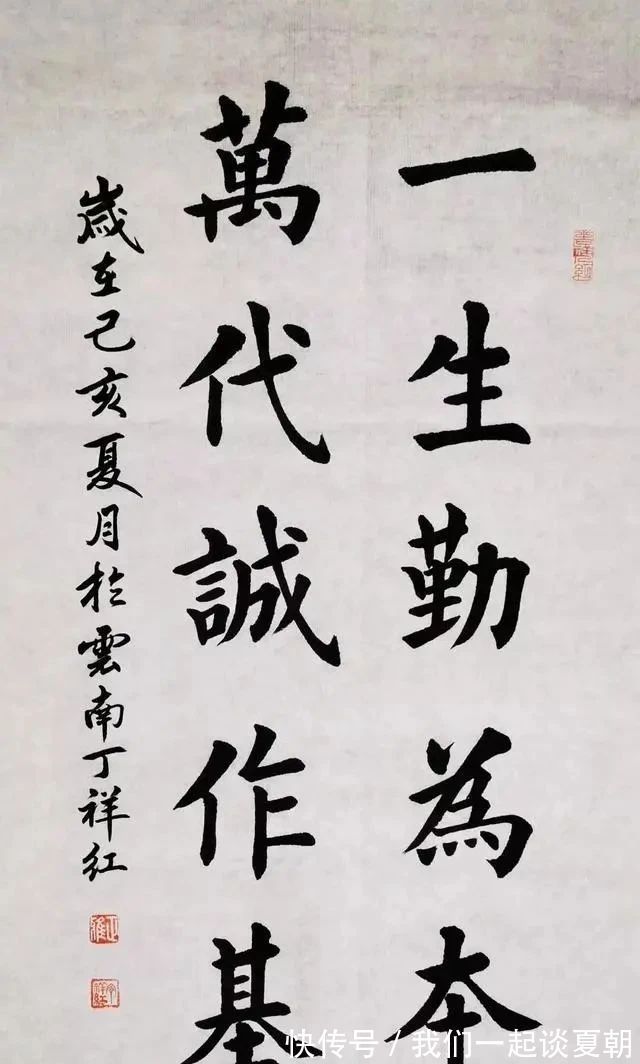 一生勤為本
萬代誠作基
歲在己亥夏月於雲南丁祥红
快传号／我们一起谈夏朝